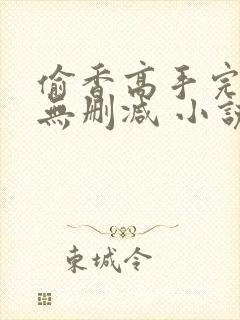 偷香高手完
無刪減 小說
東城令